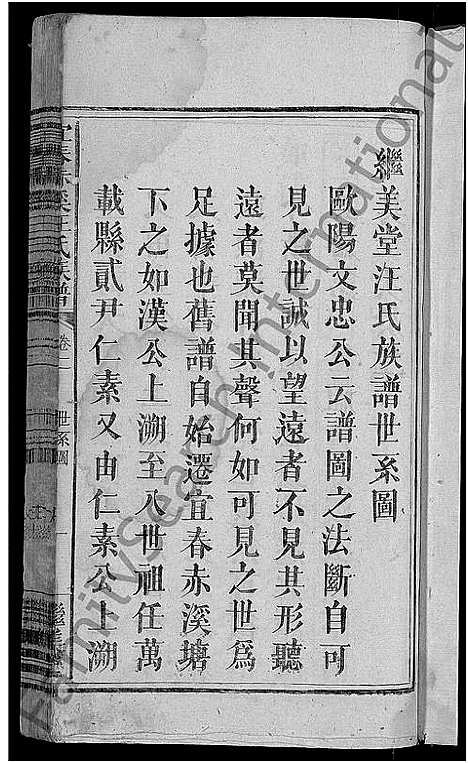 繼美堂汪氏族譜世系圖
歐陽文忠公云譜圖之法斷自可
見之世誠以望遠者不見其形聽
遠者莫聞其聲何如可見之世為
足據也舊譜自始遷宜春赤溪塘
下之如漢公上溯至八世祖任萬
載縣貳尹仁素又由仁素公上溯
宜春赤溪汪氏族譜
卷二
世系圖
一
FamilySearch International